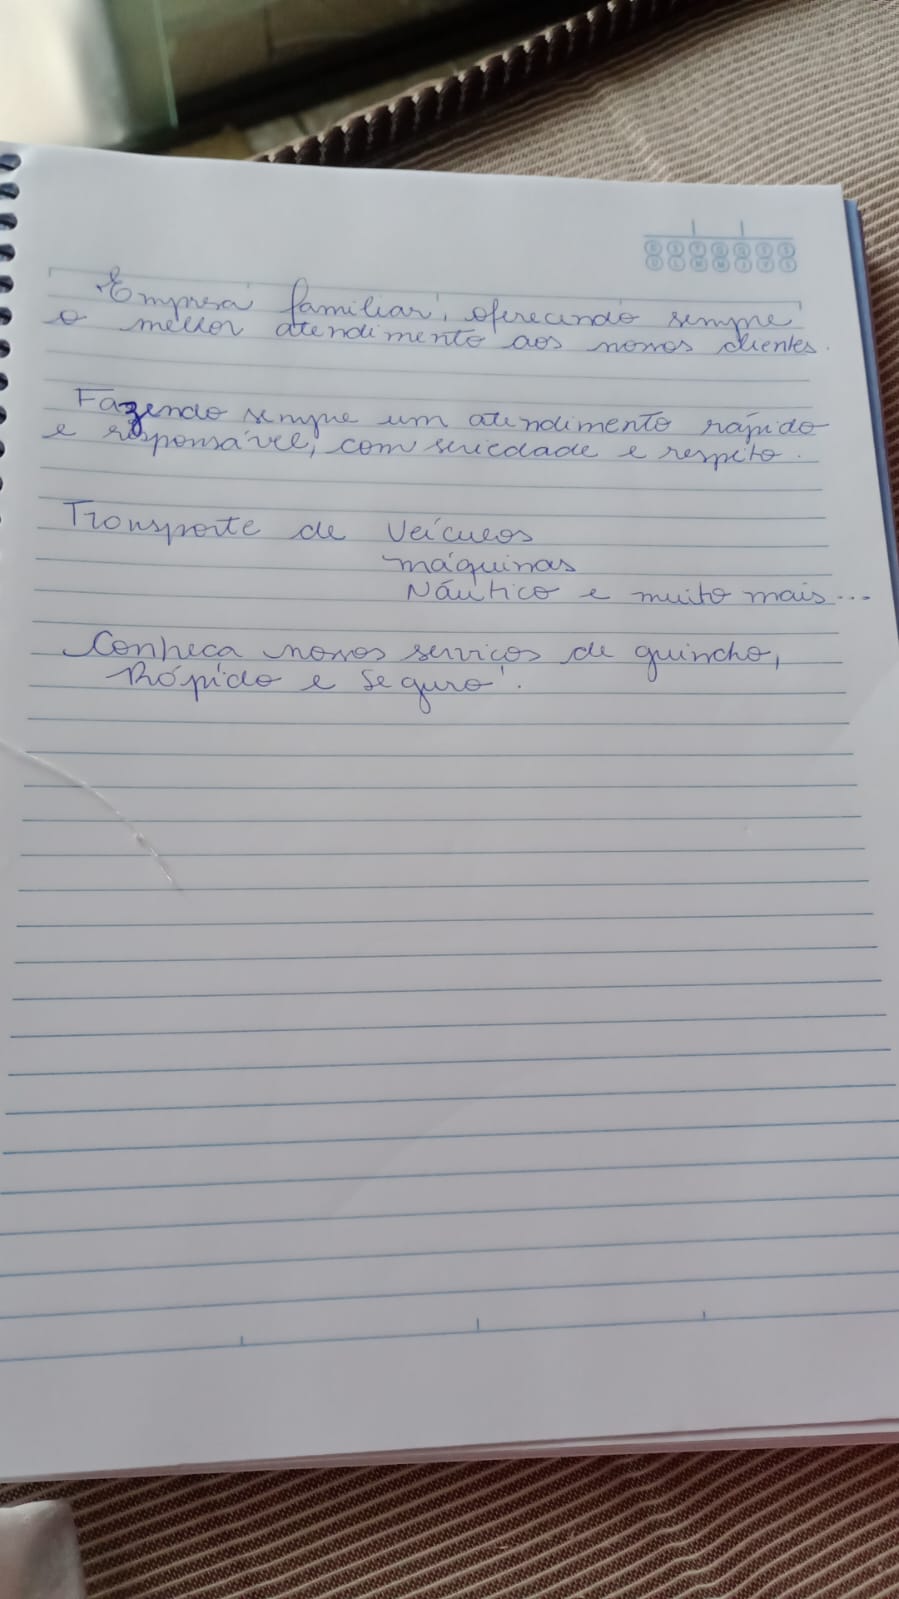 Empresa familiar, oferecendo sempre
o melhor atendimento aos nossos clientes.
Fazendo sempre um atendimento rápido
e responsável, com seriedade e respeito.
Transporte de Veículos
máquinas
Náutico e muito mais...
Conheça nossos serviços de guincho,
Rápido e Seguro!